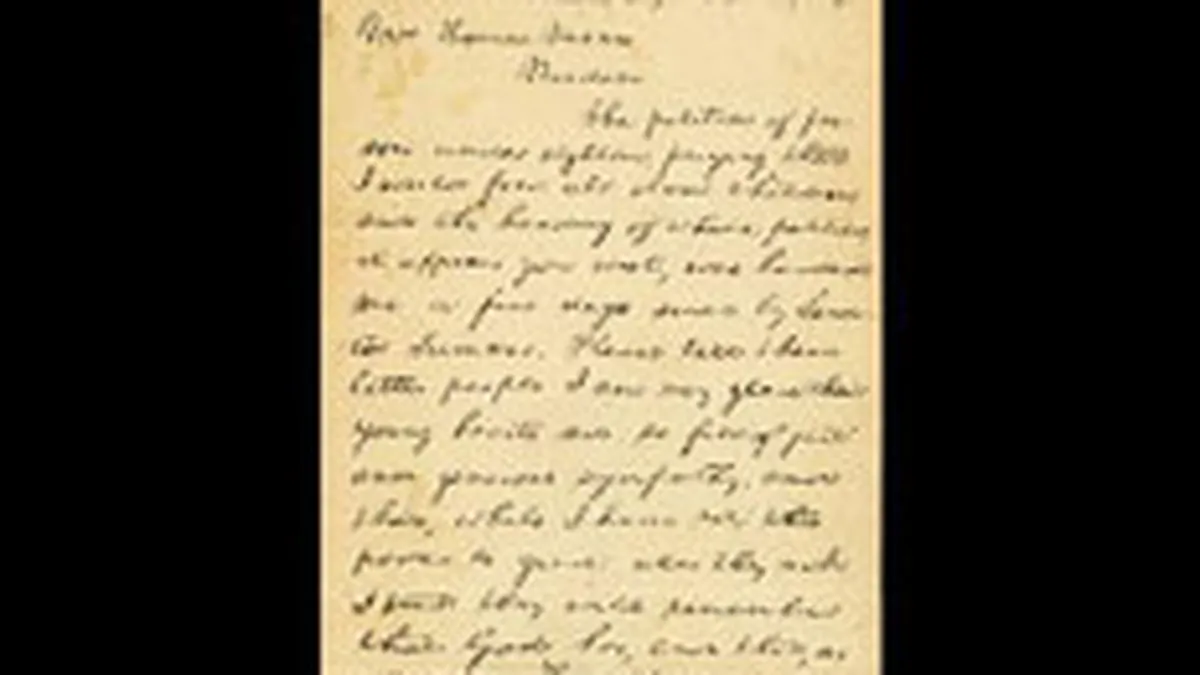 Mrs Horace Mann,
Madam,
The petition of per-
sons under eighteen, praying that
I would free all slave children,
and the heading of which petition
it appears you wrote, was handed
me a few days since by Sena-
tor Sumner. Please tell these
little people I am very glad their
young hearts are so full of just
and generous sympathy, and
that, while I have not the
power to grant all they ask,
I trust they will remember
that God has, and that, as